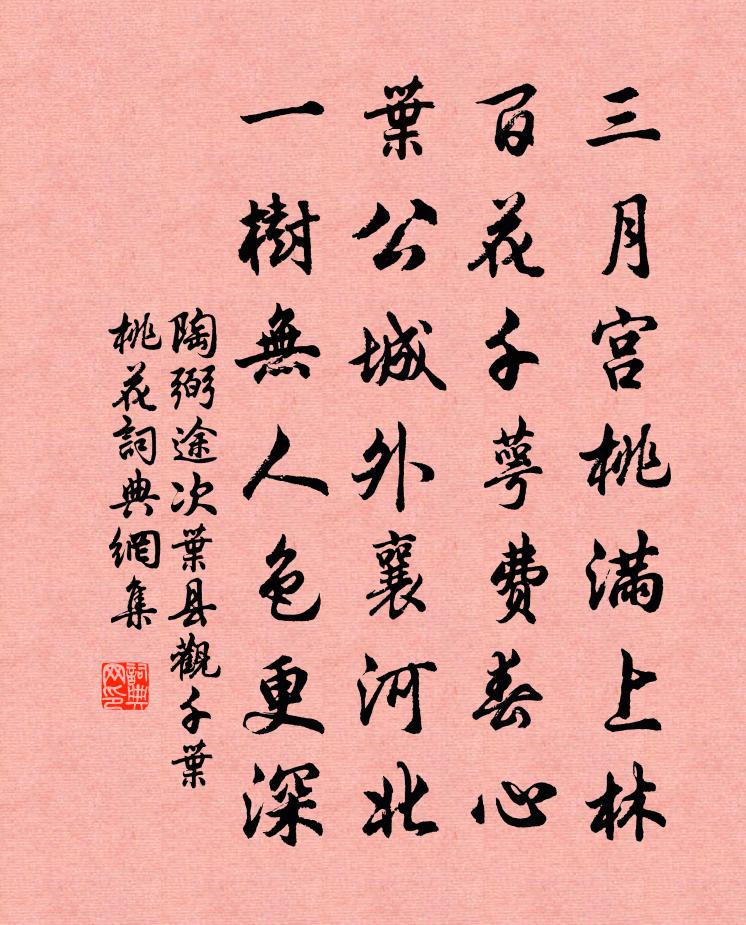 三月宫桃滿上林
百花千萼費春心
葉公城外襄河北
一樹無人色更深
陶弼途次葉县觀千葉
桃花詞典網集
詞典网印